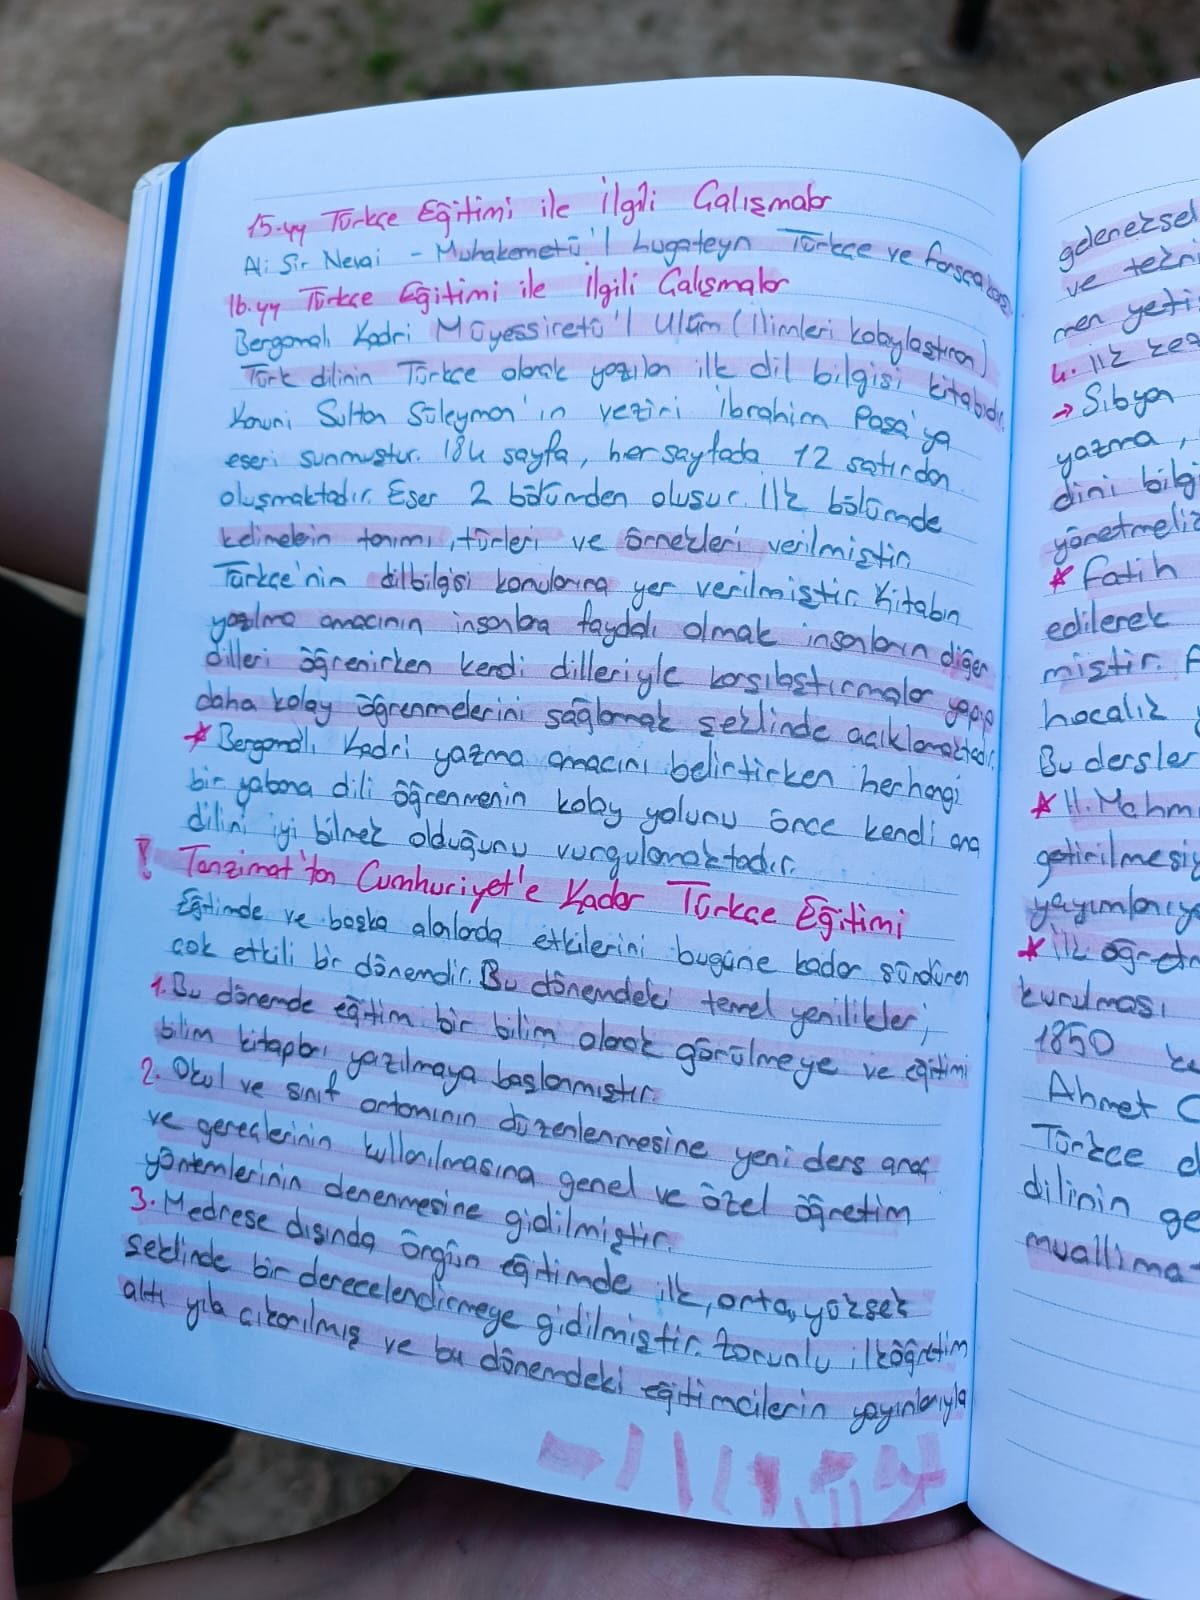 15.yy Türkçe Eğitimi ile İlgili Çalışmalar
Ali Şir Nevai - Muhakemetü'l Lugateyn Türkçe ve farsça
16.yy Türkçe Eğitimi ile İlgili Çalışmalar
Bergamalı Kadri Müyessiretü'l Ulûm (İlimleri kolaylaştıran)
Türk dilinin Türkçe olarak yazılan ilk dil bilgisi kitabıdır.
Kanuni Sultan Süleyman'ın veziri İbrahim Paşa'ya
eseri sunmuştur. 184 sayfa, her sayfada 12 satırdan
oluşmaktadır. Eser 2 bölümden oluşur. İlk bölümde
kelimelein tanımı, türleri ve örnekleri verilmiştir.
Türkçe'nin dilbilgisi konularına yer verilmiştir. Kitabın
yazılma amacının insanlara faydalı olmak insanların diğer
dilleri öğrenirken kendi dilleriyle karşılaştırmalar yapıp
daha kolay öğrenmelerini sağlamak şeklinde açıklamaktadır.
* Bergamalı Kadri yazma amacını belirtirken herhangi
bir yabancı dili öğrenmenin kolay yolunu önce kendi ana
dilini iyi bilmek olduğunu vurgulamaktadır.
! Tanzimat'tan Cumhuriyet'e Kadar Türkçe Eğitimi
Eğitimde ve başka alanlarda etkilerini bugüne kadar sürdüren
çok etkili bir dönemdir. Bu dönemdeki temel yenilikler;
1. Bu dönemde eğitim bir bilim olarak görülmeye ve eğitimi
bilim kitapları yazılmaya başlanmıştır.
2. Okul ve sınıf ortamının düzenlenmesine yeni ders araç
ve gereçlerinin kullanılmasına genel ve özel öğretim
yöntemlerinin denenmesine gidilmiştir.
3. Medrese dışında örgün eğitimde ilk, orta, yüksek
şeklinde bir derecelendirmeye gidilmiştir. Zorunlu ilköğretim
altı yıla çıkarılmış ve bu dönemdeki eğitimcilerin yayınlarıyla
geleneksel
ve
men
4. İlk
→ Sıbyan
yazma,
dini
* Fatih
edilerek
miştir.
hocalık
Bu dersler
* II. Mahm
getirilmesi
* İlk
kurulması
1850
Ahmet C
Türkçe
dilinin